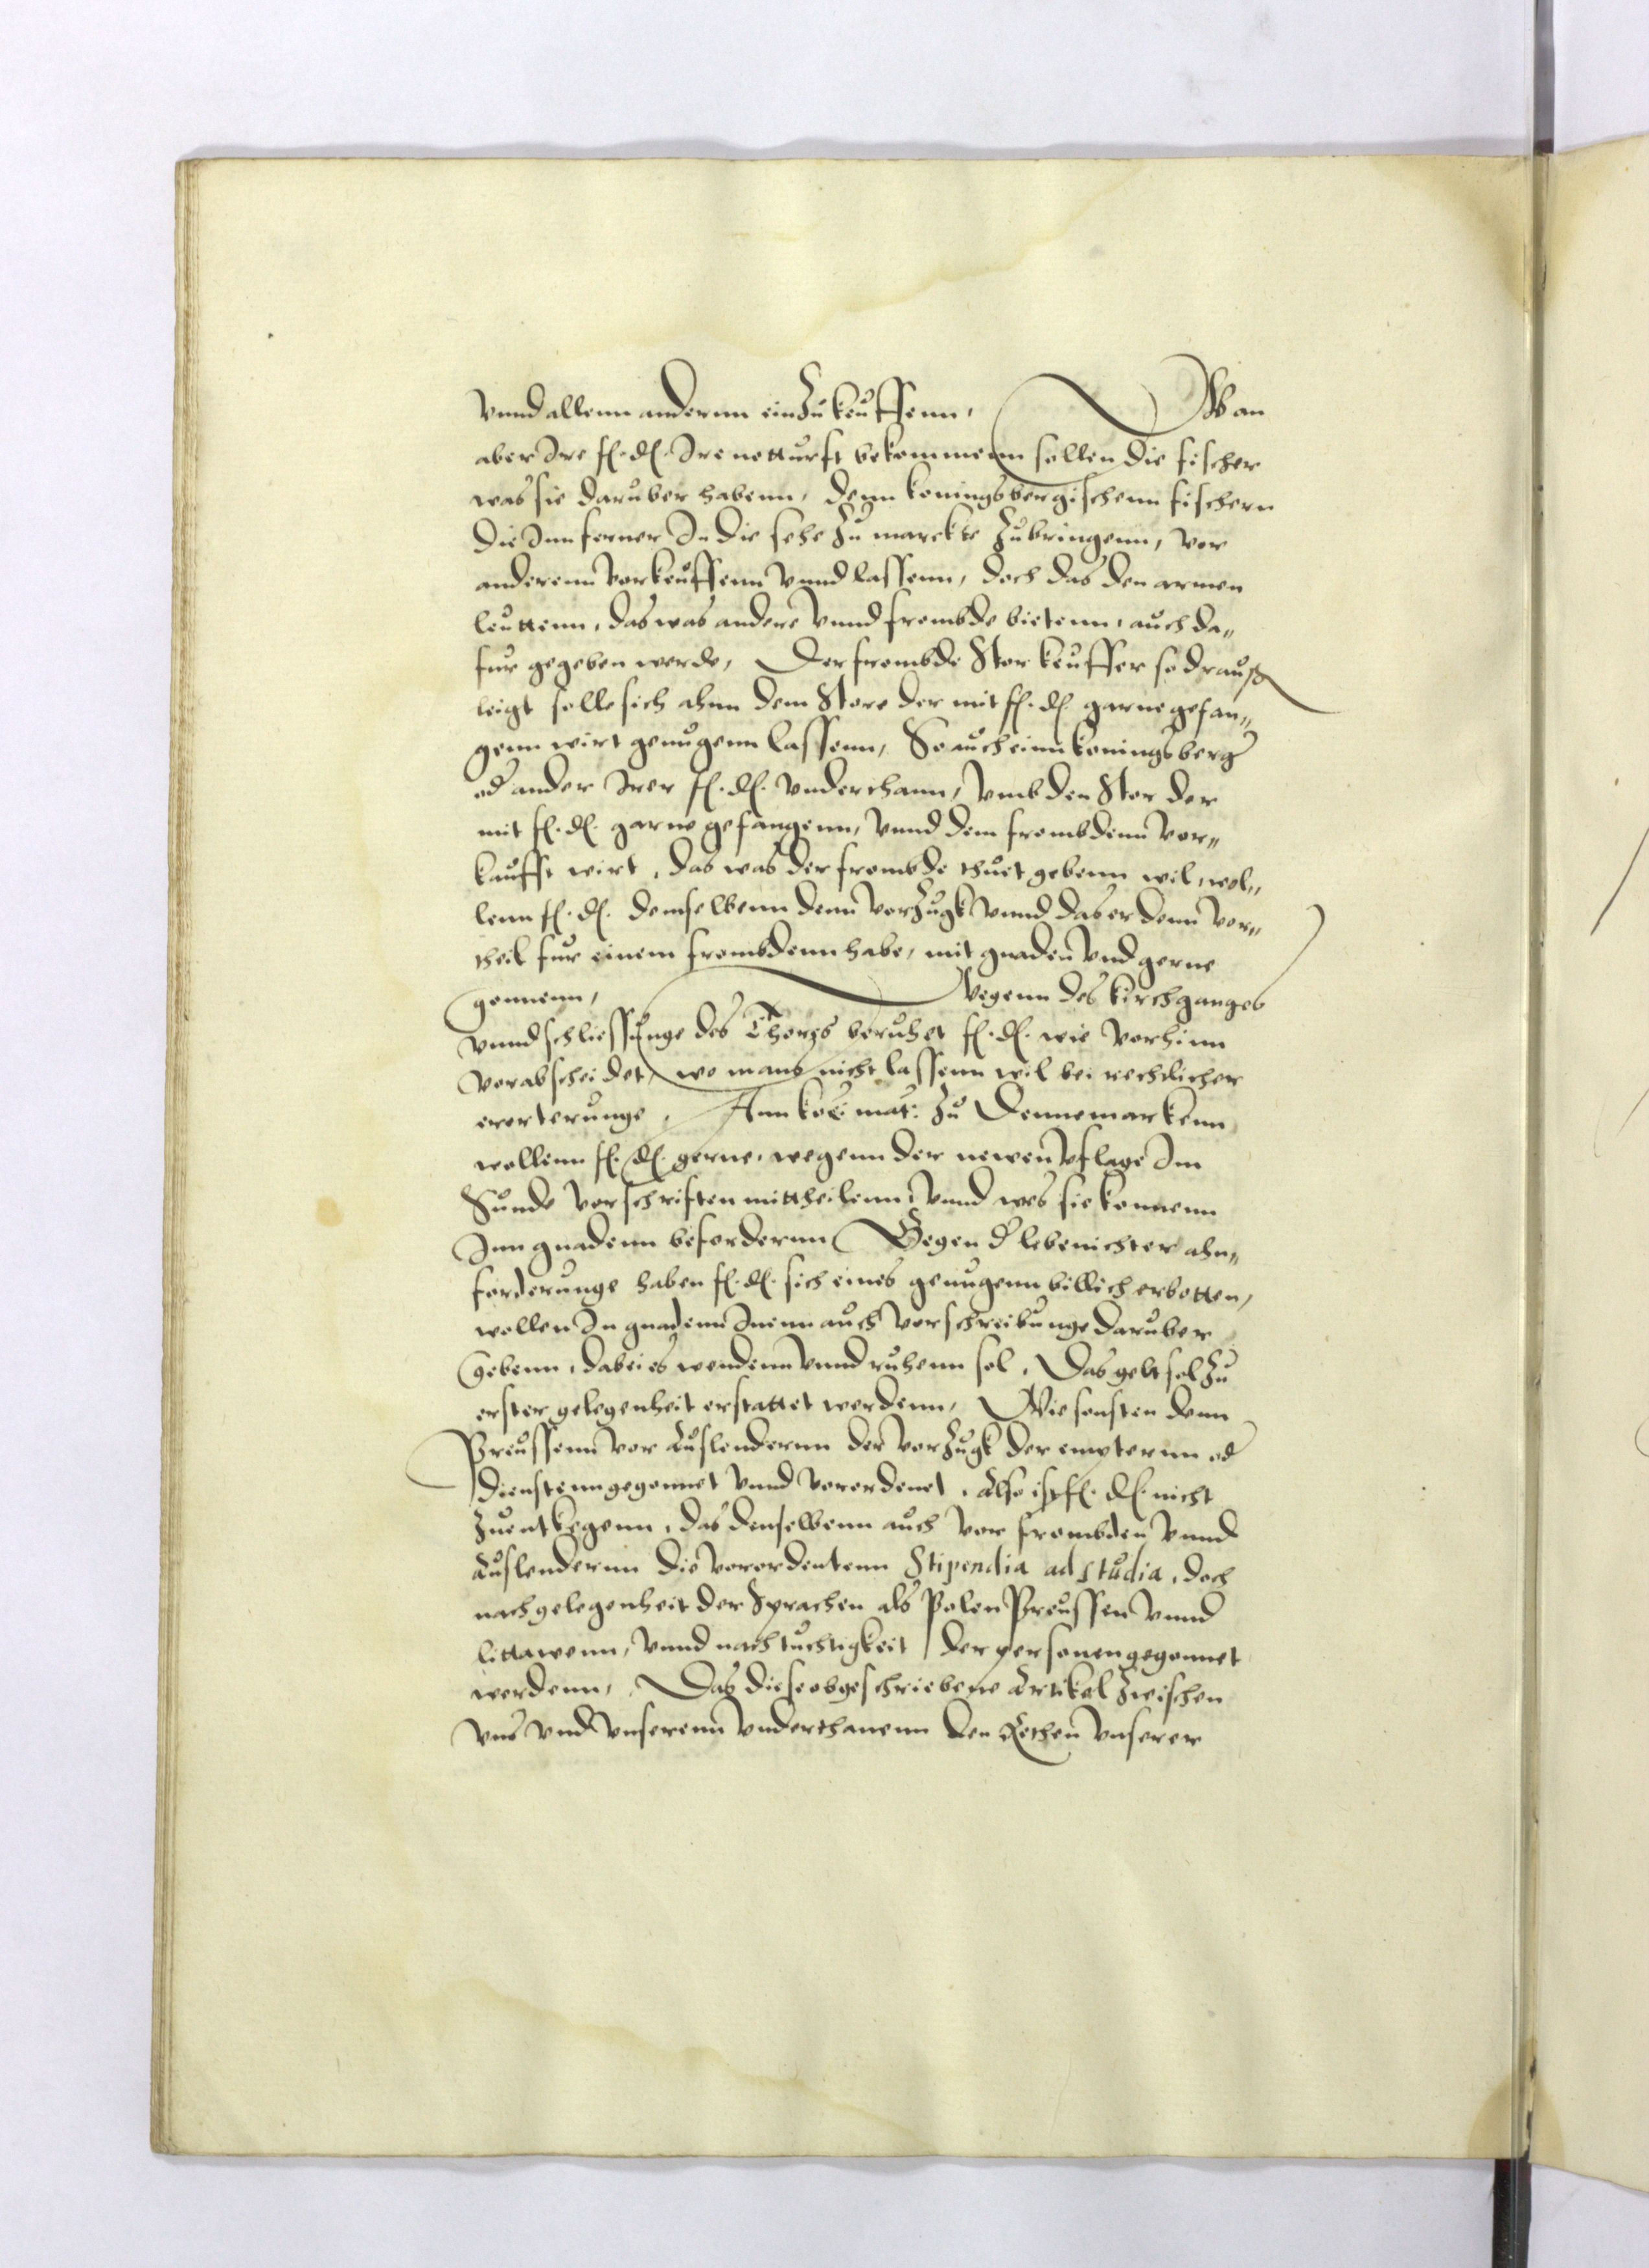 vnnd allenn anderrnn einzukeuffenn, Wan
aber Jre f. d. Jre notturft bekommenn sollen die fischer
was sie daruber habenn, denn koningsbergischenn fischern
die Jnn ferner Jn die sehe zu marckte zubringenn, vor
anderenn vorkeuffenn vnnd lassenn, doch das den armen
leuttenn, das was andere vnnd frembde bietenn, auch da„
fur gegeben werde, Der frembde Stor keuffer so drauß
leigt solle sich ahnn dem Store der mit f. d. garne gefan„
genn wirt genugenn lassenn, So auch einn koningsberg
od ander Jrer f. d. vnderthann, vmb den Stor der
mit f. d. garne gefangenn, vnnd dem frembdenn vor„
kaufft wirt, das was der frembde thuet gebenn wil, wol„
lenn f. d. demselbenn denn vorzugk vnnd das er denn vor„
theil fur einem frembdenn habe, mit gnaden vnd gerne
gonnenn, Wegenn des kirchganges
vnnd schliessunge des Thorßs beruhet f. d. wie vorhinn
vorabscheidet, wo mans nicht lassenn wil bei rechtlicher
erorterunge, Ann koe: mat: zu Dennemarkenn
wollenn f. d. gerne, wegenn der newen vflage Jm
Sunde vorschriften mittheilenn, vnnd wes sie konnenn
Jnn gnadenn befordernn Gegen d lebenichter ahn„
forderunge haben f. d. sich eines genugenn billich erbotten,
wollen Jn gnadenn Jnenn auch vorschreibunge daruber
gebenn, dabei es wendenn vnnd ruhenn sol, Das gelt sol zu
erster gelegenheit erstattet werdenn, Wie sonsten denn
Preussenn vor auslendernn der vorzugk der empternn od
dienstenn gegonnet vnnd verordenet, Also ist f. d. nicht
zuentkegenn, das denselbenn auch vor frembden vnnd
auslendernn die verordentenn Stipendia ad studia, doch
nach gelegenheit der sprachen als Polen Preussen vnnd
littawenn, vnnd nach tuchtigkeit der personen gegonnet
werdenn, Das diese obgeschriebene Artikel zwischen
vns vnd vnserenn vnderthanenn den Rethen vnserer